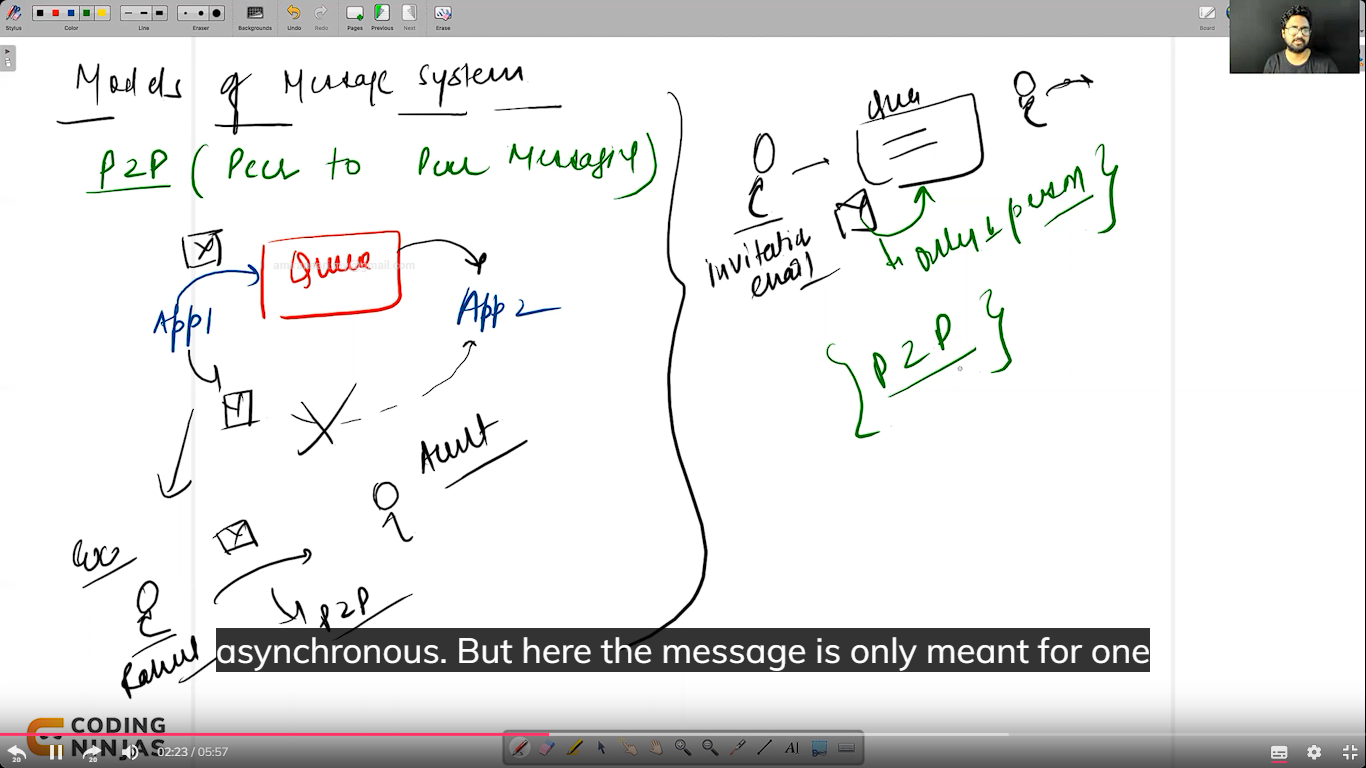 Stylus
Color
Line
Eraser
Backgrounds
Undo
Redo
Pages
Previous
Next
Erase
Board
Models of Message System
P2P (Peer to Peer Messaging)
Queue
App1
App 2
P2P
Rahul
invitation
email
only 1 person
P2P
asynchronous. But here the message is only meant for one
CODING
NINJAS
20
20
02:23 / 05:57